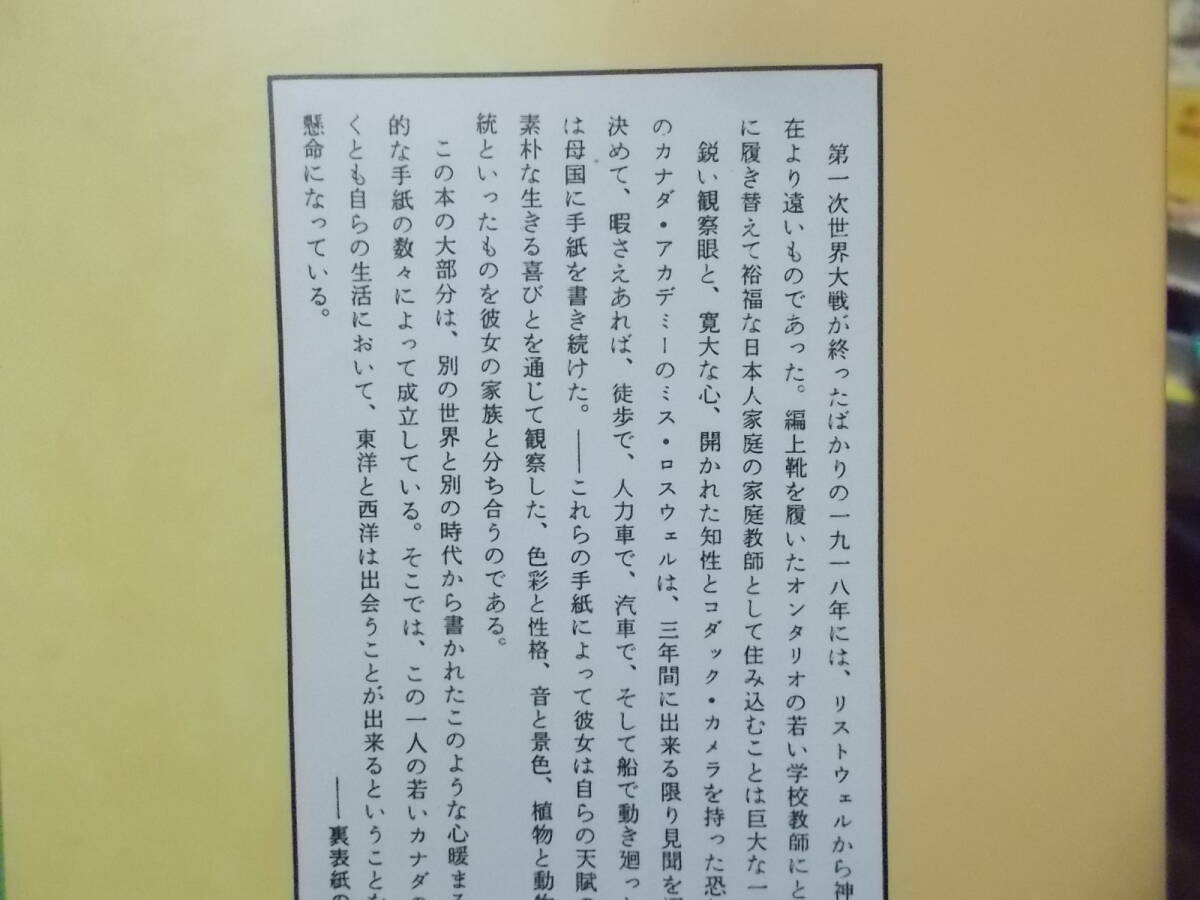 第一次世界大戦が終ったばかりの一九一八年には、リストウェルから神
在より遠いものであった。編上靴を履いたオンタリオの若い学校教師にと
に履き替えて裕福な日本人家庭の家庭教師として住み込むことは巨大な一
鋭い観察眼と、寛大な心、開かれた知性とコダック・カメラを持った恐
のカナダ・アカデミーのミス・ロスウェルは、三年間に出来る限り見聞を
決めて、暇さえあれば、徒歩で、人力車で、汽車で、そして船で動き廻っ
は母国に手紙を書き続けた。――これらの手紙によって彼女は自らの天賦の
素朴な生きる喜びとを通じて観察した、色彩と性格、音と景色、植物と動物
統といったものを彼女の家族と分ち合うのである。
この本の大部分は、別の世界と別の時代から書かれたこのような心暖まる
的な手紙の数々によって成立している。そこでは、この一人の若いカナダの
くとも自らの生活において、東洋と西洋は出会うことが出来るということを
懸命になっている。
――裏表紙の